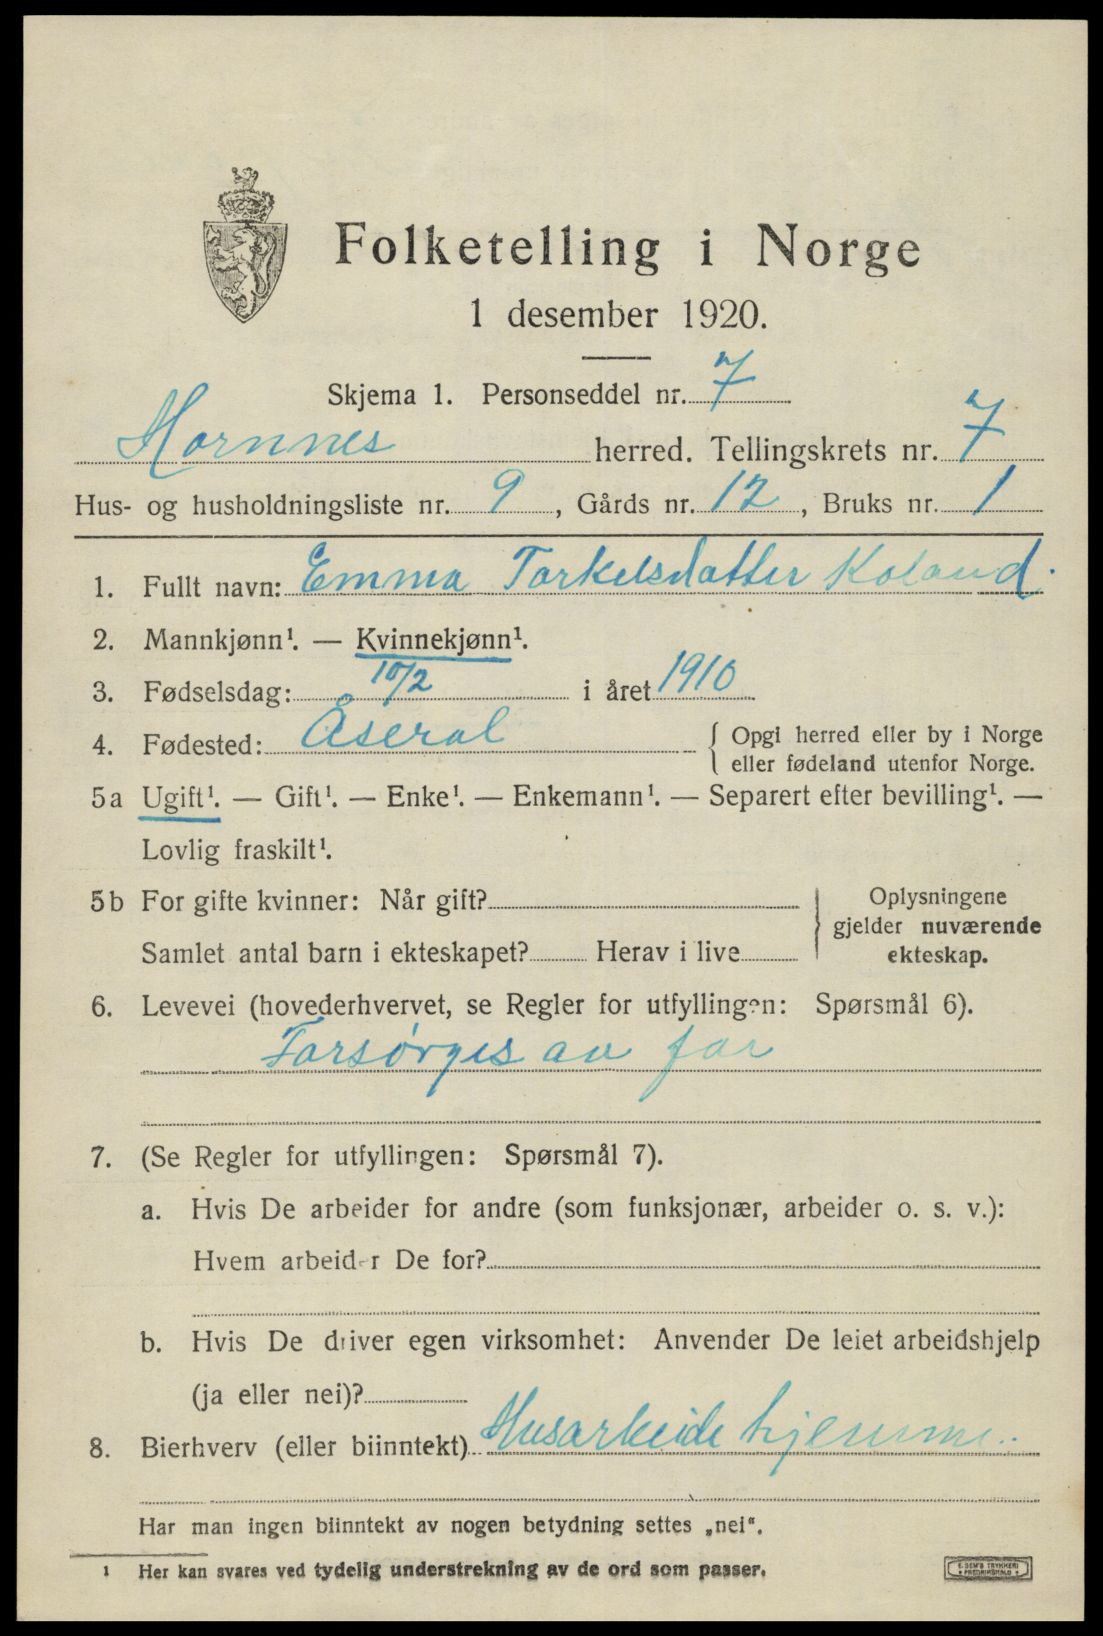 Folketelling i Norge
1 desember 1920.
Skjema 1. Personseddel nr. 7
Hornnes herred. Tellingskrets nr. 7
Hus- og husholdningsliste nr. 9, Gårds nr. 12, Bruks nr. 1
1. Fullt navn: Emma Torkelsdatter Koland.
2. Mannkjønn¹. — Kvinnekjønn¹.
3. Fødselsdag: 10/2 i året 1910
4. Fødested: Åseral { Opgi herred eller by i Norge
eller fødeland utenfor Norge.
5a Ugift¹. — Gift¹. — Enke¹. — Enkemann¹. — Separert efter bevilling¹. —
Lovlig fraskilt¹.
5b For gifte kvinner: Når gift? } Oplysningene
gjelder nuværende
Samlet antal barn i ekteskapet? Herav i live ekteskap.
6. Levevei (hovederhvervet, se Regler for utfyllingen: Spørsmål 6).
Forsørges av far
7. (Se Regler for utfyllingen: Spørsmål 7).
a. Hvis De arbeider for andre (som funksjonær, arbeider o. s. v.):
Hvem arbeider De for?
b. Hvis De driver egen virksomhet: Anvender De leiet arbeidshjelp
(ja eller nei)?
8. Bierhverv (eller biinntekt) Husarbeide hjemme.
Har man ingen biinntekt av nogen betydning settes „nei“.
¹ Her kan svares ved tydelig understrekning av de ord som passer.
E. SEM'S TRYKKERI
FREDRIKSHALD